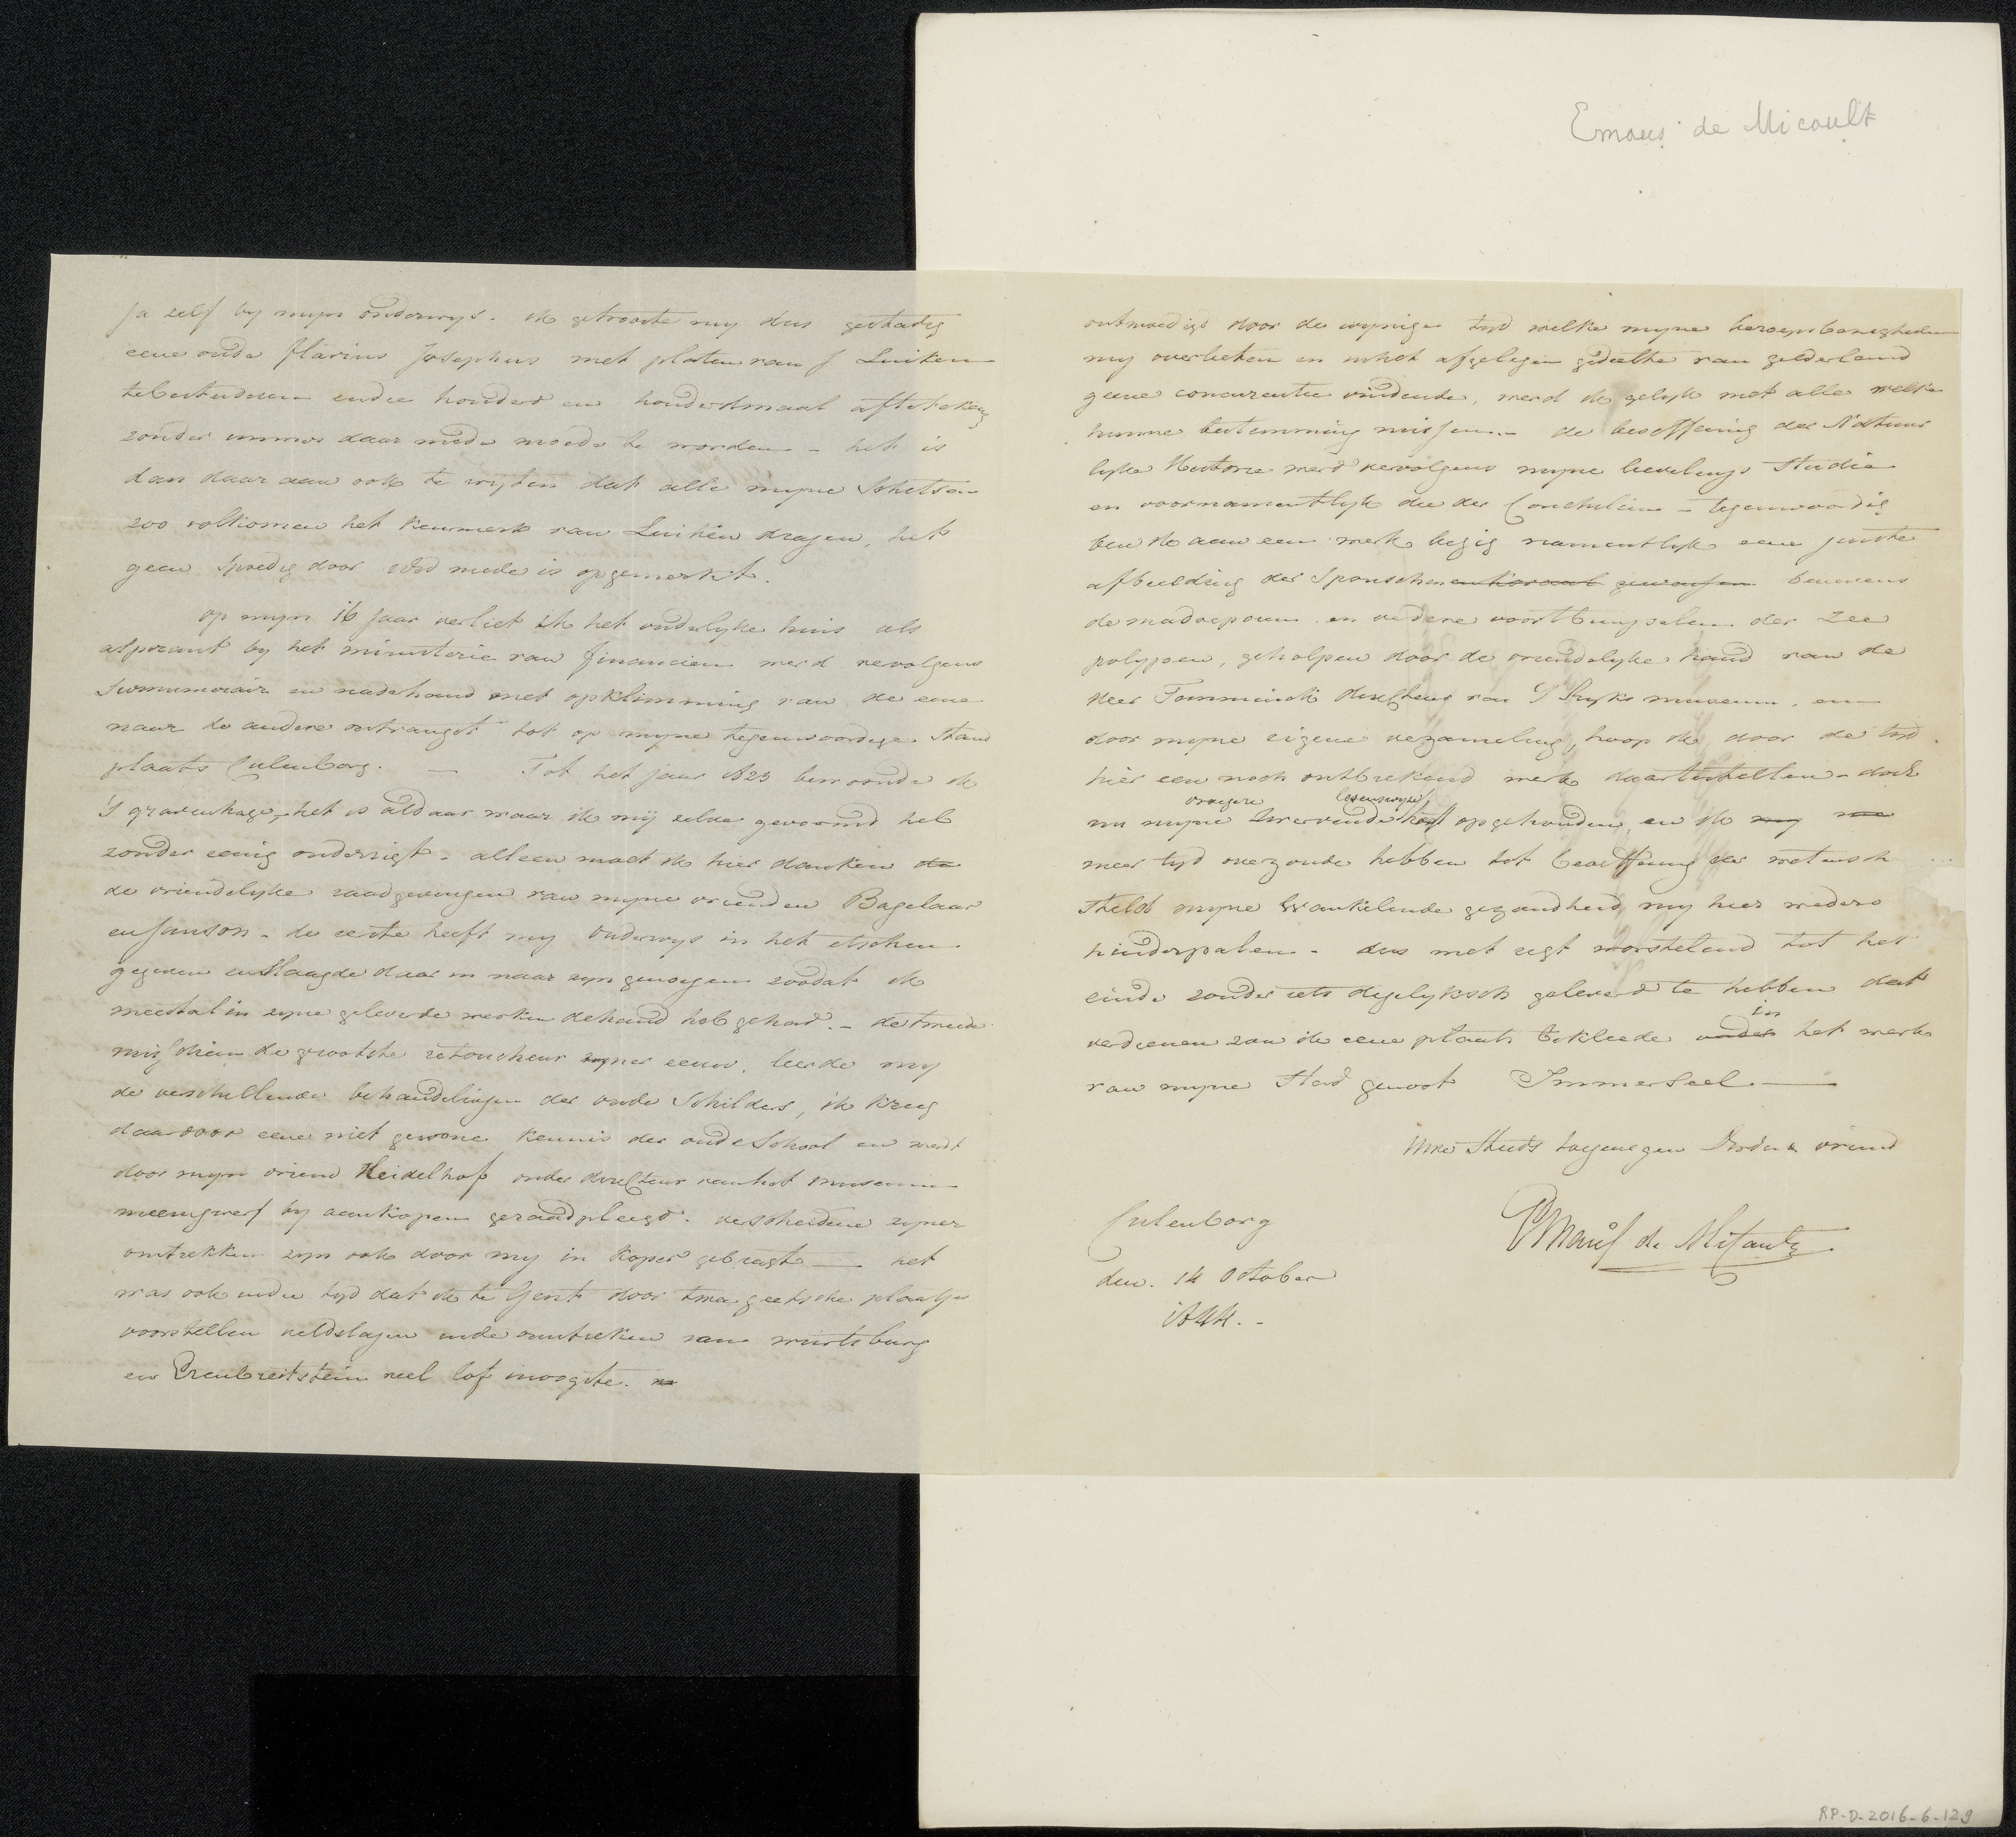 Emaus de Micault
ja zelf by myn onderwys. ik getrooste my dus gestadig
eene oude Flavius Josephus met platen van J Luiken
te bestuderen en die honderd en honderdmaal afteteken
zonder immer daar mede moede te worden - het is
dan daar aan ook te wyten dat alle myne Schetsen
zoo volkomen het kenmerk van Luiken dragen, het
geen Spoedig door mede is opgemerkt.
op myn 16 jaar verliet ik het ouderlyke huis als
aspirant by het ministerie van financien werd vervolgens
Surnumerair en nadehand met opklimming van de eene
naar de andere ontvangst tot op myne tegenwoordige Stand
plaats Culenborg. — Tot het jaar 1823 bewoonde ik
'S gravenhage, het is aldaar waar ik mij zelve gevormd heb
zonder eenig onderrigt - alleen moet ik hier danken de
de vriendelyke raadgevingen van myne vrienden Bagelaar
en Janson - de eerste heeft my onderwys in het etschen
gegeven en Slaagde daar in naar zyn genoegen zoodat ik
meestal in zyne geleverde werken de hand heb gehad. - de tweede
misschien de grootste retoucheur zyner eeuw, leerde my
de verschillende behandelingen der oude Schilders, ik kreeg
daardoor eene niet gewone kennis der oude School en werdt
door myn vriend Heidelhof onder directeur van het museum
meenigwerf by aankopen geraadpleegd. verscheidene zyner
omtrekken zyn ook door my in koper gebragt — het
was ook in die tyd dat ik te Gent door twee geetste plaatjes
voorstellen veldslagen in de omtreken van wurtsburg
en Erenbreitstein veel lof inoogste.
ontmoedigd door de wynige tyd welke myne beroepsbezigheden
my overlieten en in het afgelegen gedeelte van gelderland
geene concurentie vindende, werd ik gelyk met alle welke
hunne bestemming missen. - de beoeffening der Natuur
lyke Historie werd vervolgens myne lievelings Studie
en voornamentlyk die der Conchilien - tegenwoordig
ben ik aan een werk bezig namentlyk eene juiste
afbeelding der Sponschen en koraal gewassen benevens
de madreporen en verdere voortbrengselen der Zee
polypen, geholpen door de vriendelyke hand van de
Heer Temminck directeur van 'S Ryks museum, en
door myne eigene verzameling, hoop ik door de tyd
hier een noch ontbrekend werk daartestellen - doch
vroegere levenswyze
nu myne zwervende heeft opgehouden, en ik my
meer tyd over zoude hebben tot beoeffening der wetensch
Stelt myne Wankelende gezondheid my hier weders
hinderpalen - dus met regt worstelend tot het
einde zonder iets degelyksch geleverd te hebben dat
in
verdienen zou ik eene plaats bekleede onder het werk
van myne Stad genoot Immerseel —
Uwe Steeds toegenegen vriend
Culenborg
den. 14 October
1844. -
RP-D-2016-6-129